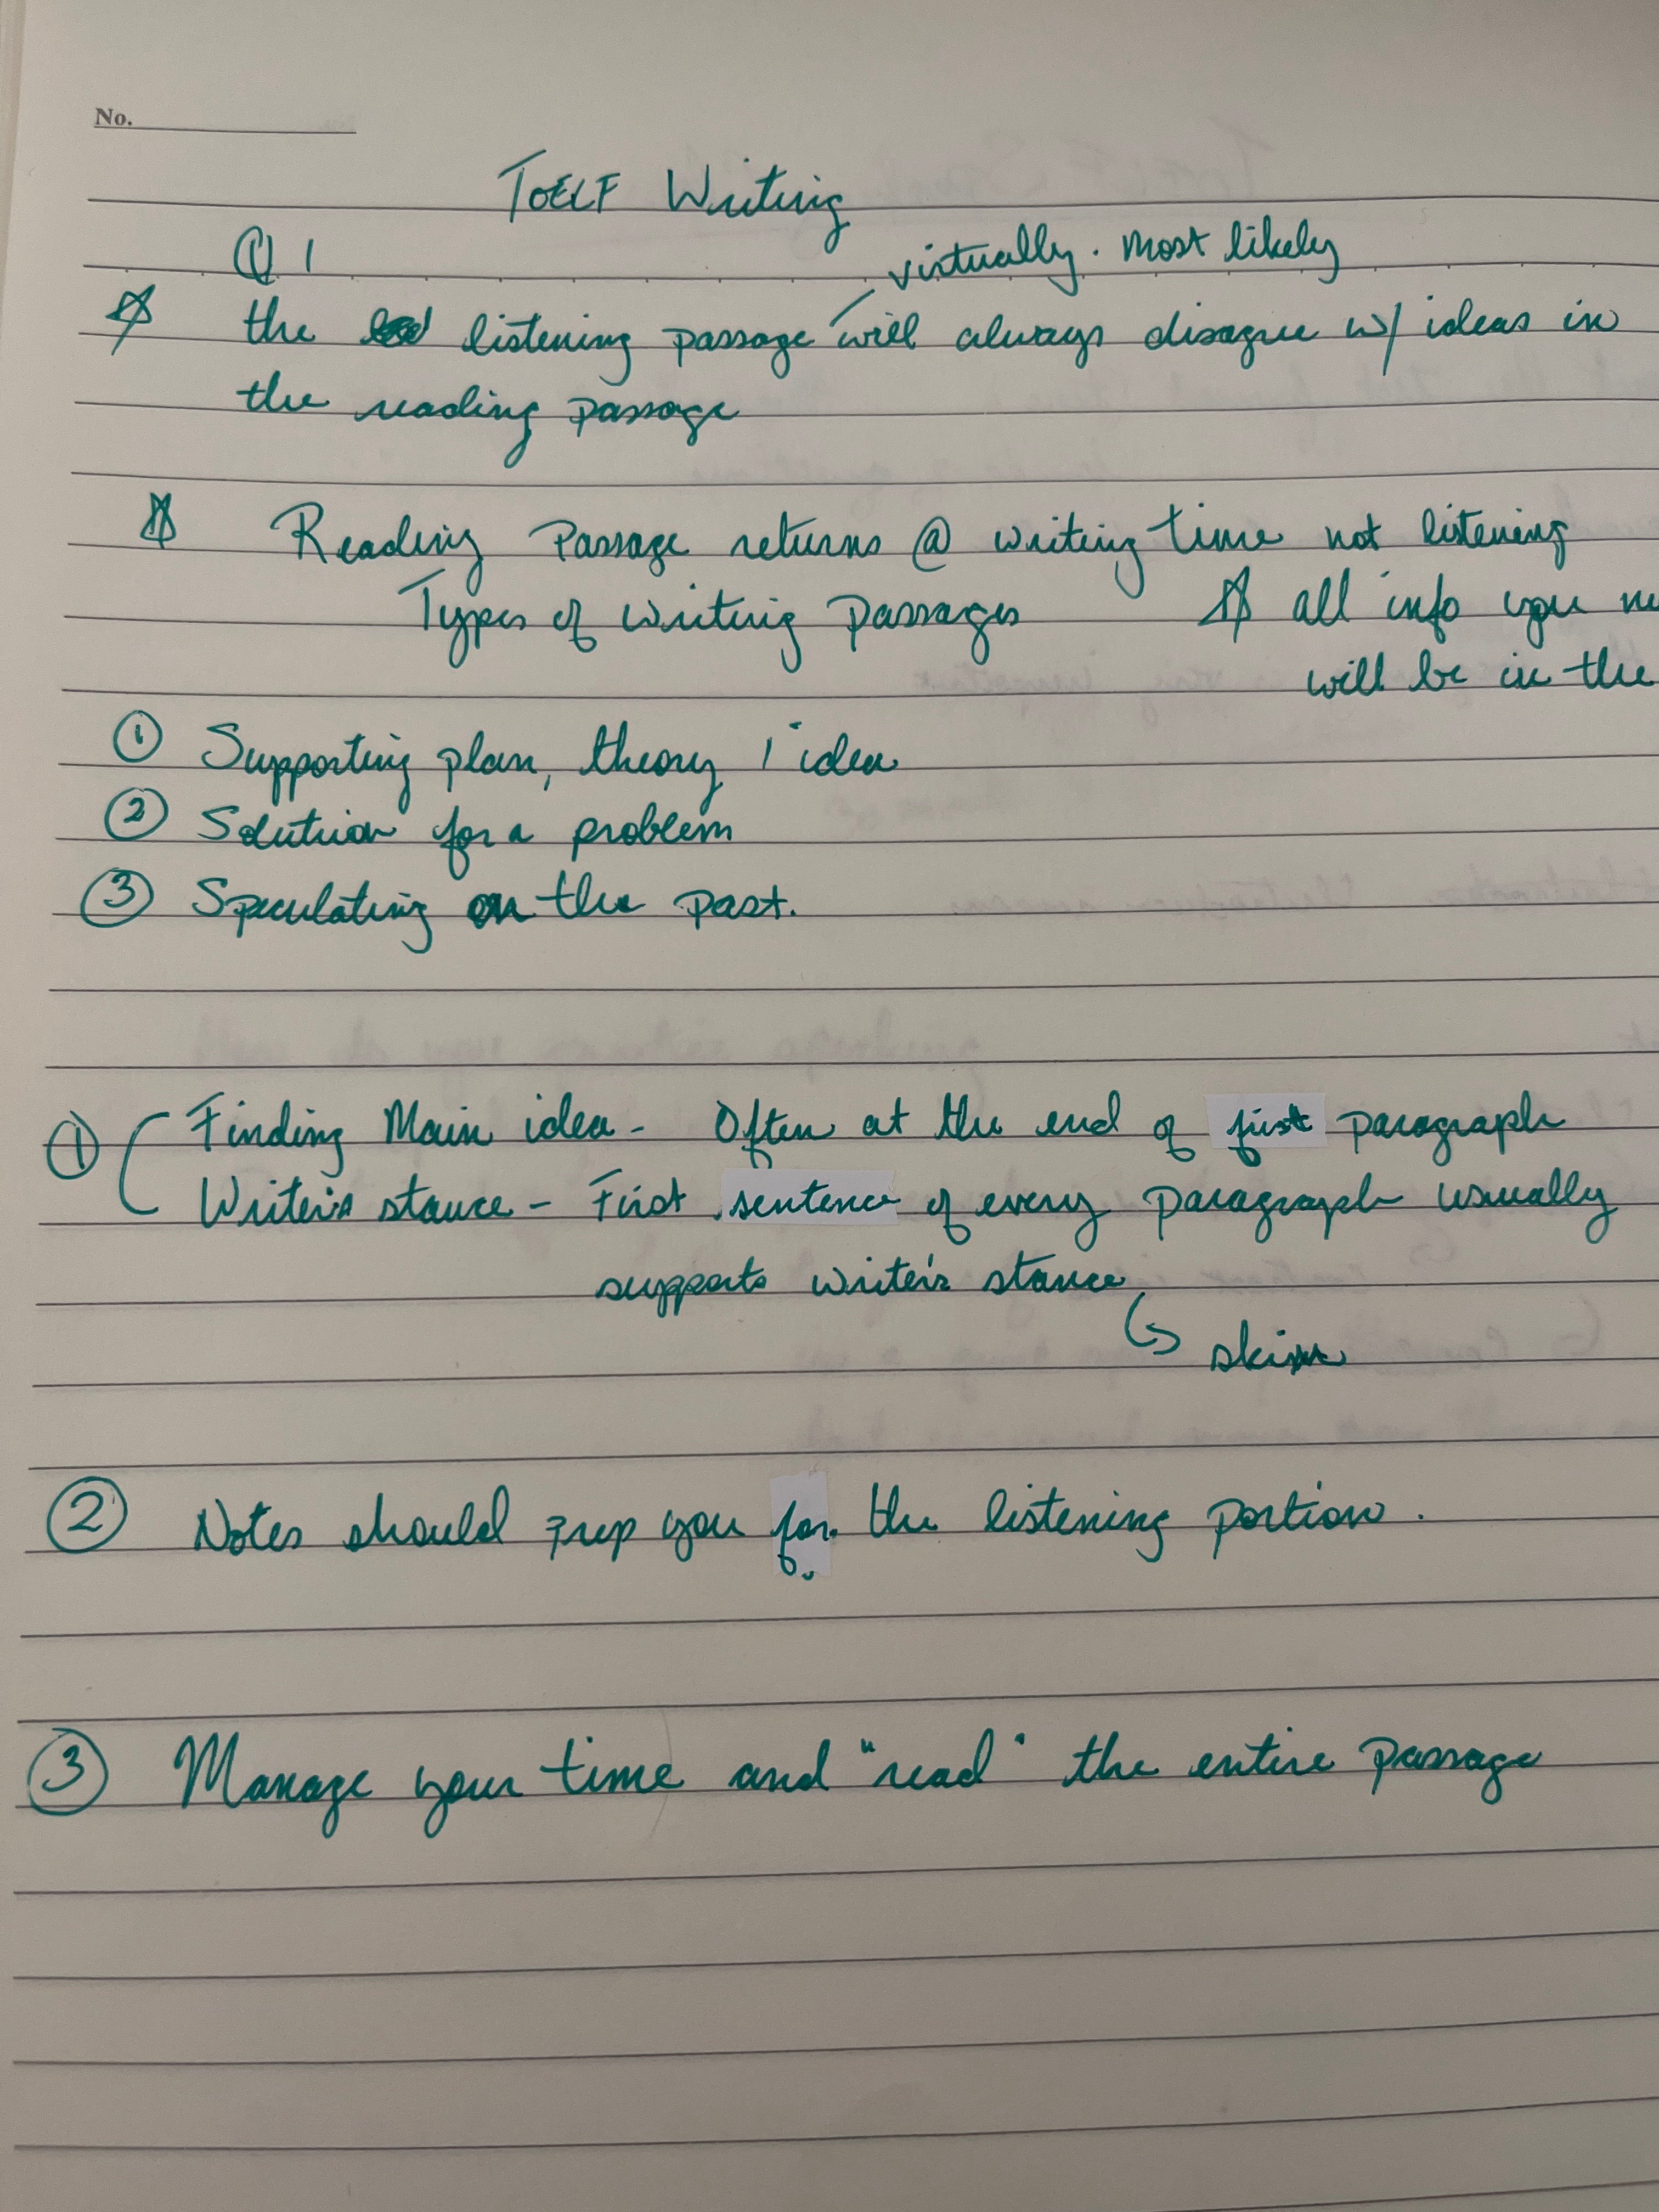 No.
TOELF Writing
Q1
virtually. Most likely
☆ the listening passage will always disagree w/ ideas in
the reading passage
☆ Reading Passage returns @ writing time not listening
Types of writing Passages ☆ all info you
will be in the
① Supporting plan, theory / idea
② Solution for a problem
③ Speculating on the past.
① Finding Main idea - Often at the end of first paragraph
Writer's stance - First sentence of every paragraph usually
supports writer's stance
↳ skim
② Notes should prep you for the listening portion.
③ Manage your time and "read" the entire passage